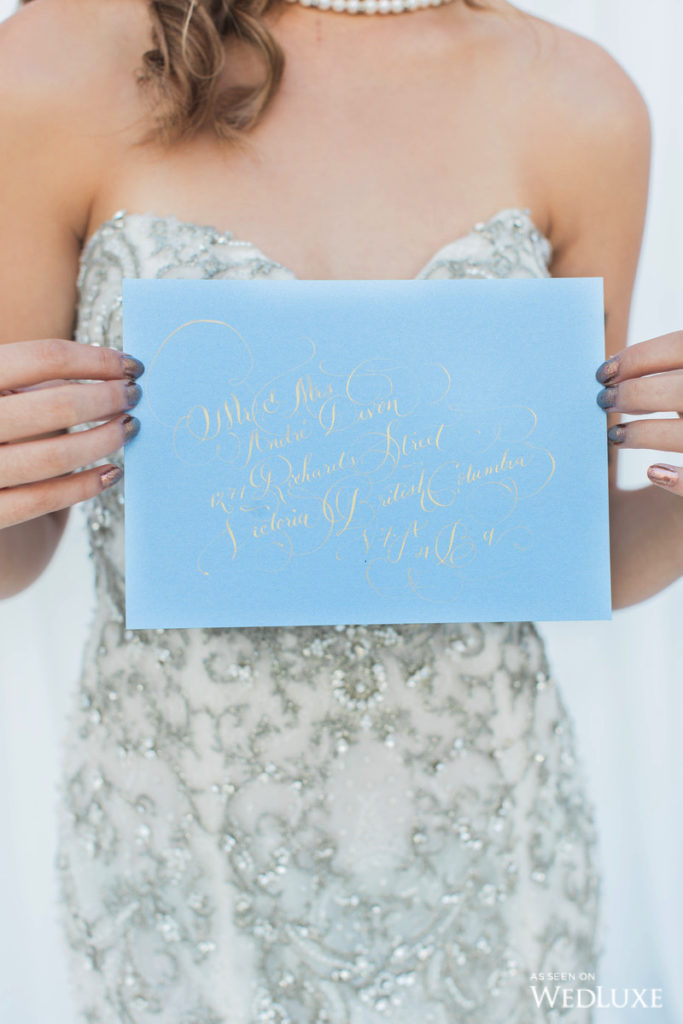 Mr & Mrs
André Divon
1271 Richards Street
Victoria British Columbia
AS SEEN ON
WEDLUXE